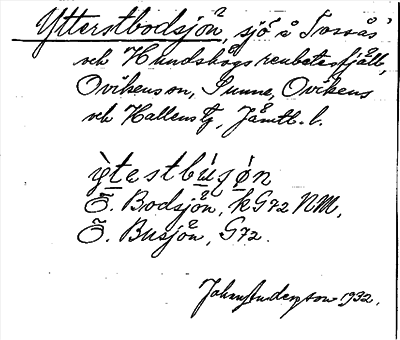 Ytterstbodsjön, sjö å Torrås'
och Hundshögs renbetesfjäll,
Ovikens sn, Sunne, Ovikens
och Hallens tg, Jämtl. l.
ỳtestbúsøn
Ö. Bodsjön, kG72 NM,
Ö. Busjön, G72.
Johny Anderson 1932.